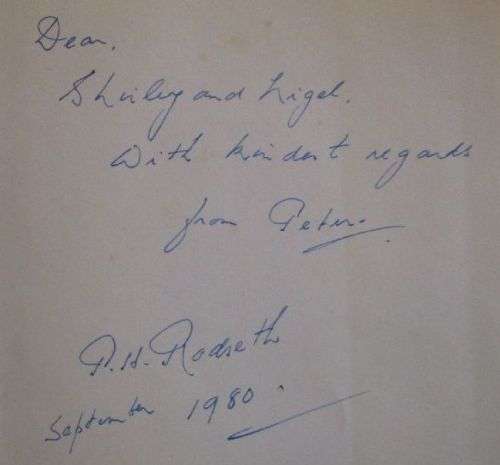 Dear,
Shirley and Nigel.
With kindest regards
from Peter.
P.H. Rodseth
September 1980.